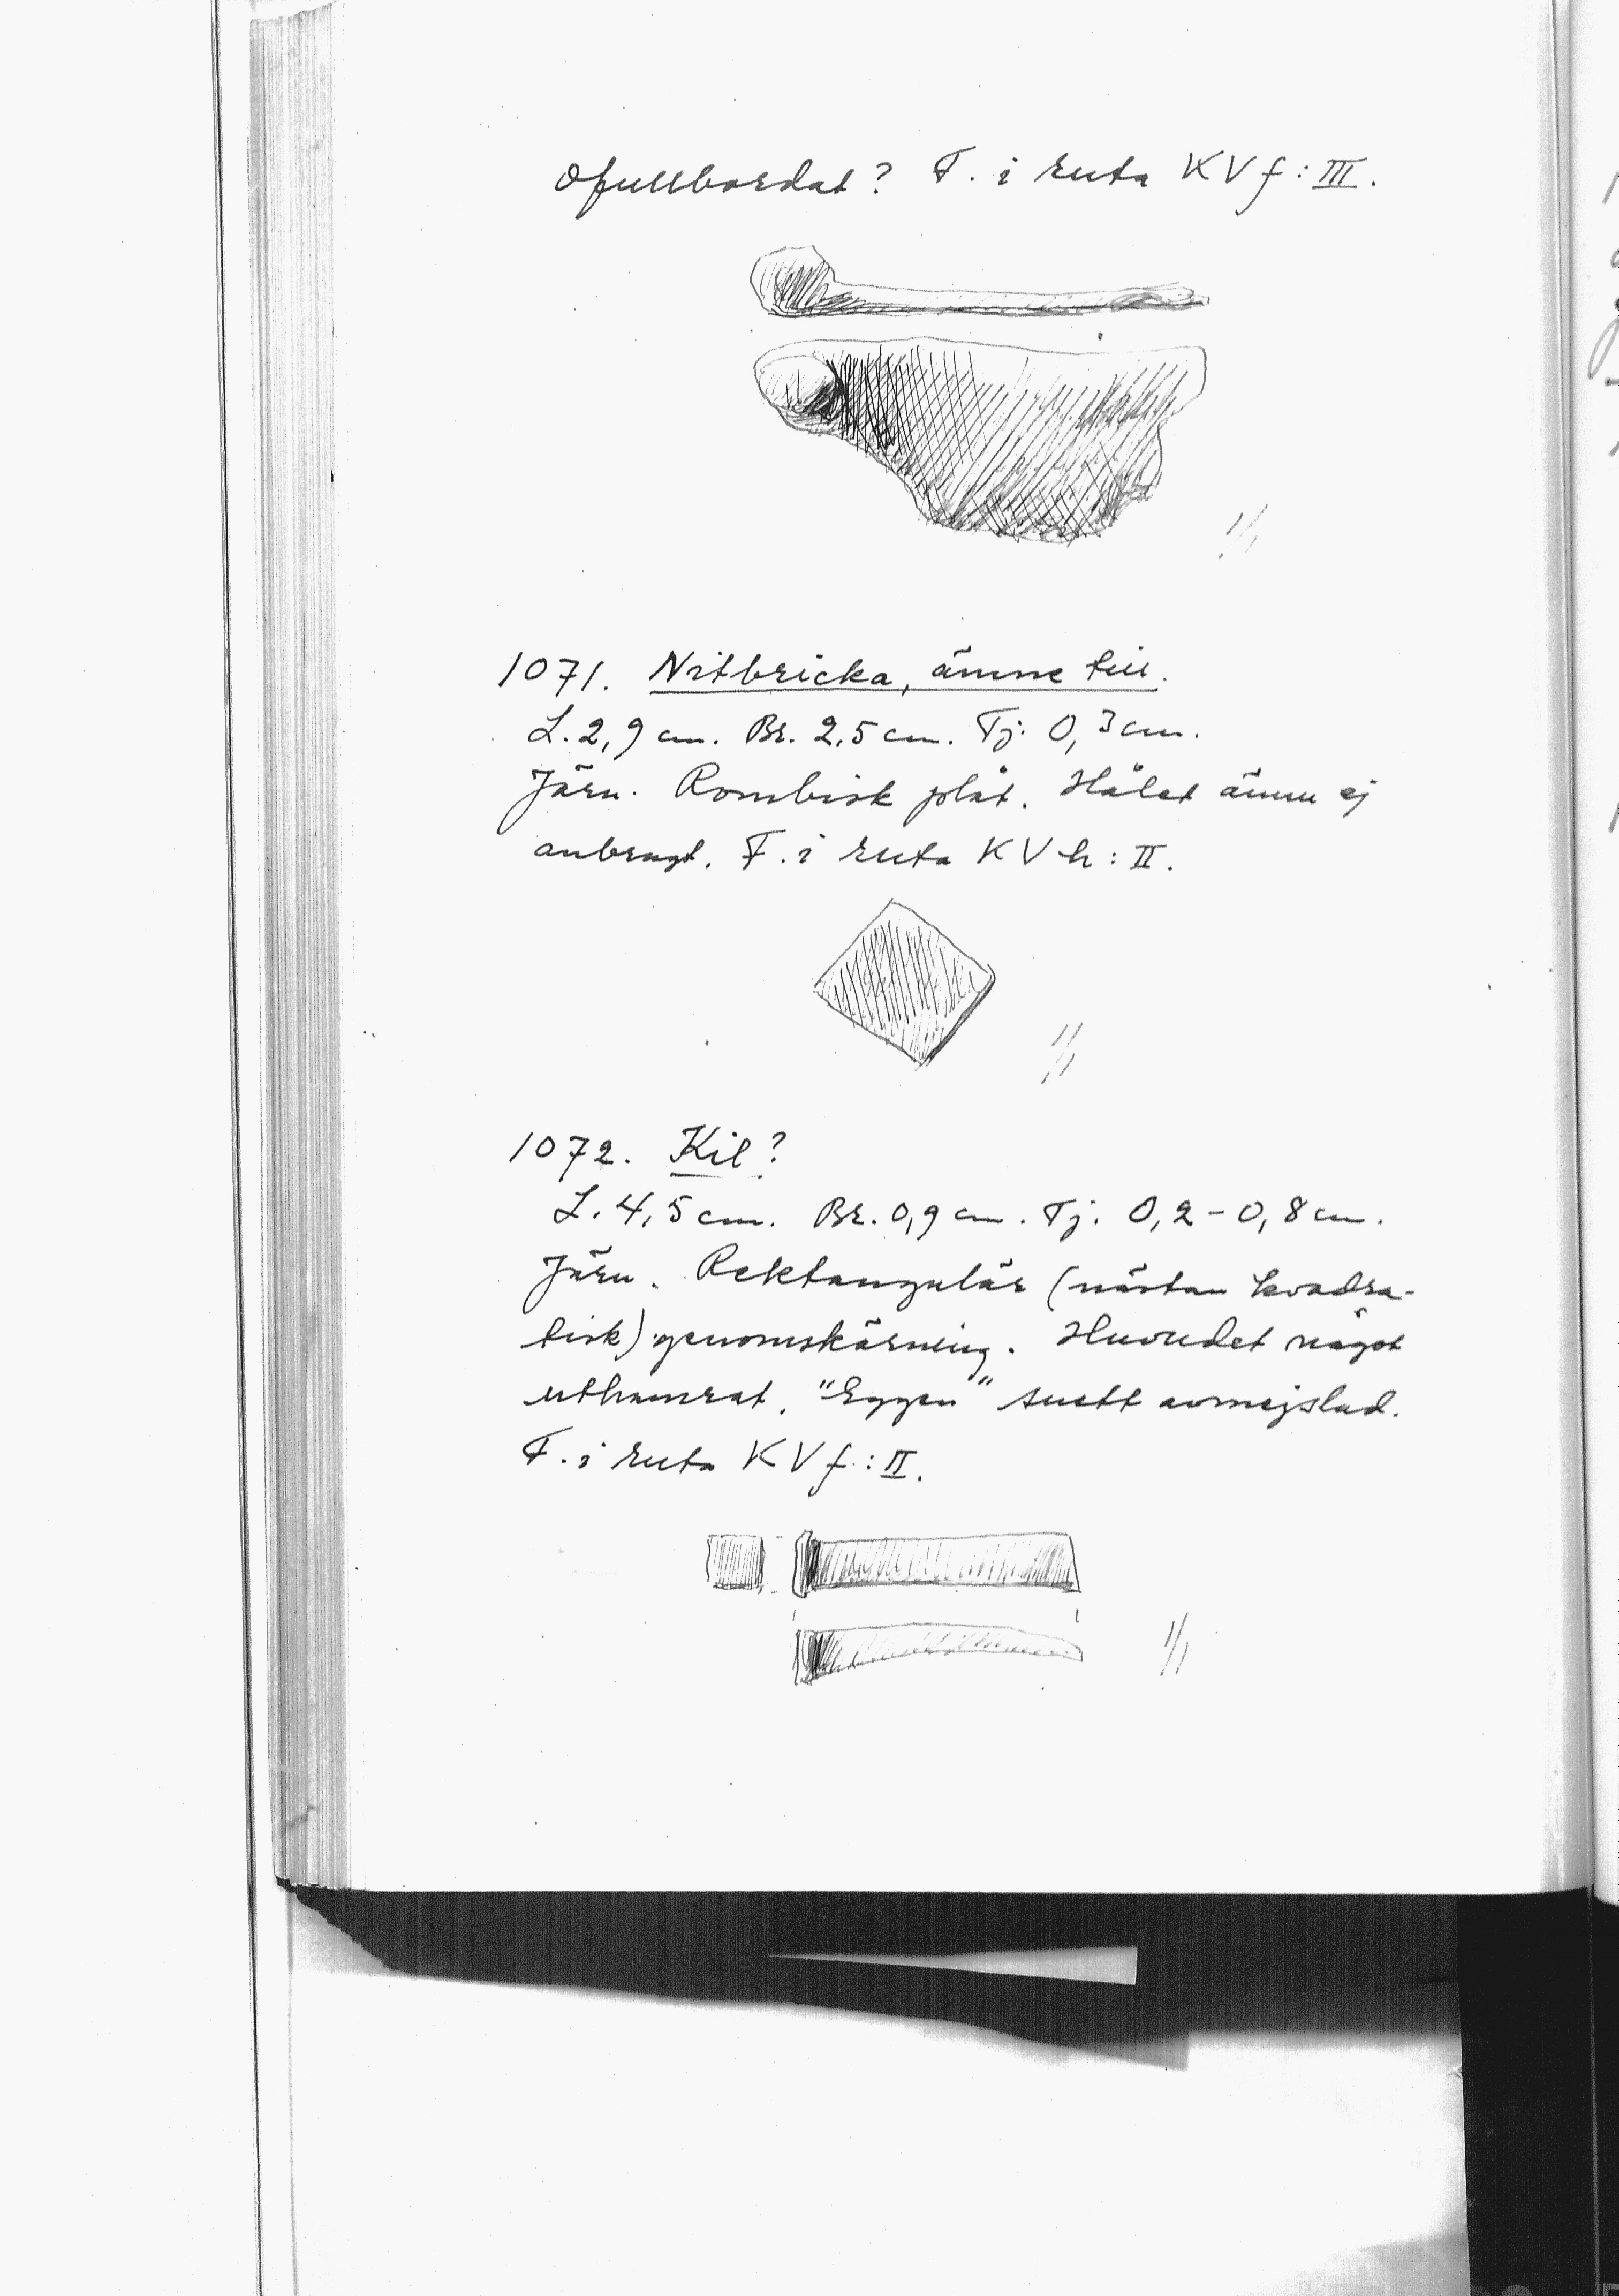 Ofullbordat? F. i ruta KVf:III.
1/1
1071. Nitbricka, ämne till.
L. 2,9 cm. Br. 2,5 cm. Tj. 0,3 cm.
Järn. Rombisk plåt. Hålet ännu ej
anbragt. F. i ruta KVh:II.
1/1
1072. Kil?
L. 4,5 cm. Br. 0,9 cm. Tj. 0,2-0,8 cm.
Järn. Rektangulär (nästan kvadra-
tisk) genomskärning. Huvudet något
uthamrat. "Eggen" snett avmejslad.
F. i ruta KVf:II.
1/1